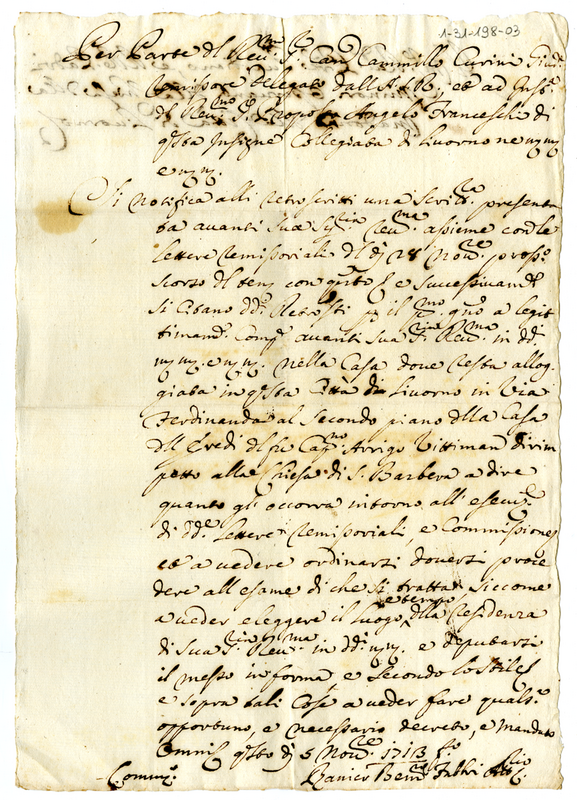 1-31-198-03
Per Parte del Rev.mo S.r Can.co Cammillo Curini Giud.
Remissore Delegato dall A.R., et ad Inst.
del Rev.mo S. Proposto Angelo Franceschi di
q.sta Insigne Collegiata di Livorno ne nn
e nn.
Si notifica alli retroscritti una scritt.ra presenta
ta avanti sua Sig.ria Rev.ma assieme con le
lettere Remissoriali del dì 28 Nov.re pross.o
scorso del ten. con q.to e successivam.te
si citano dd.i Retro.tti p il p.mo g.no a legit
timam.te Comp. avanti sua S.ria R.ma in dd.
nn. e nn. nella Casa dove resta allog
giata in q.sta Città di Livorno in Via
Ferdinanda al secondo piano della Casa
dell Eredi del fu Cap.no Arrigo Vittiman dirim
petto alla Chiesa di S. Barbera a dire
quanto gl'occorra intorno all'esecuz.e
di dd.e lettere Remissoriali, e Commissione,
et a vedere ordinarsi doversi proce
dere all esame di che si tratta siccome
a veder eleggere il luogo e tempo della Residenza
di sua S.ria Rev.ma in dd. nn. e deputarsi
il messo in forma, e secondo lo stile
e sopra tali cose a veder fare quals.o
opportuno, e necessario decreto, e mandato
Omni q.sto dì 5 Nov.re 1713
Comm. Ranier Ben.